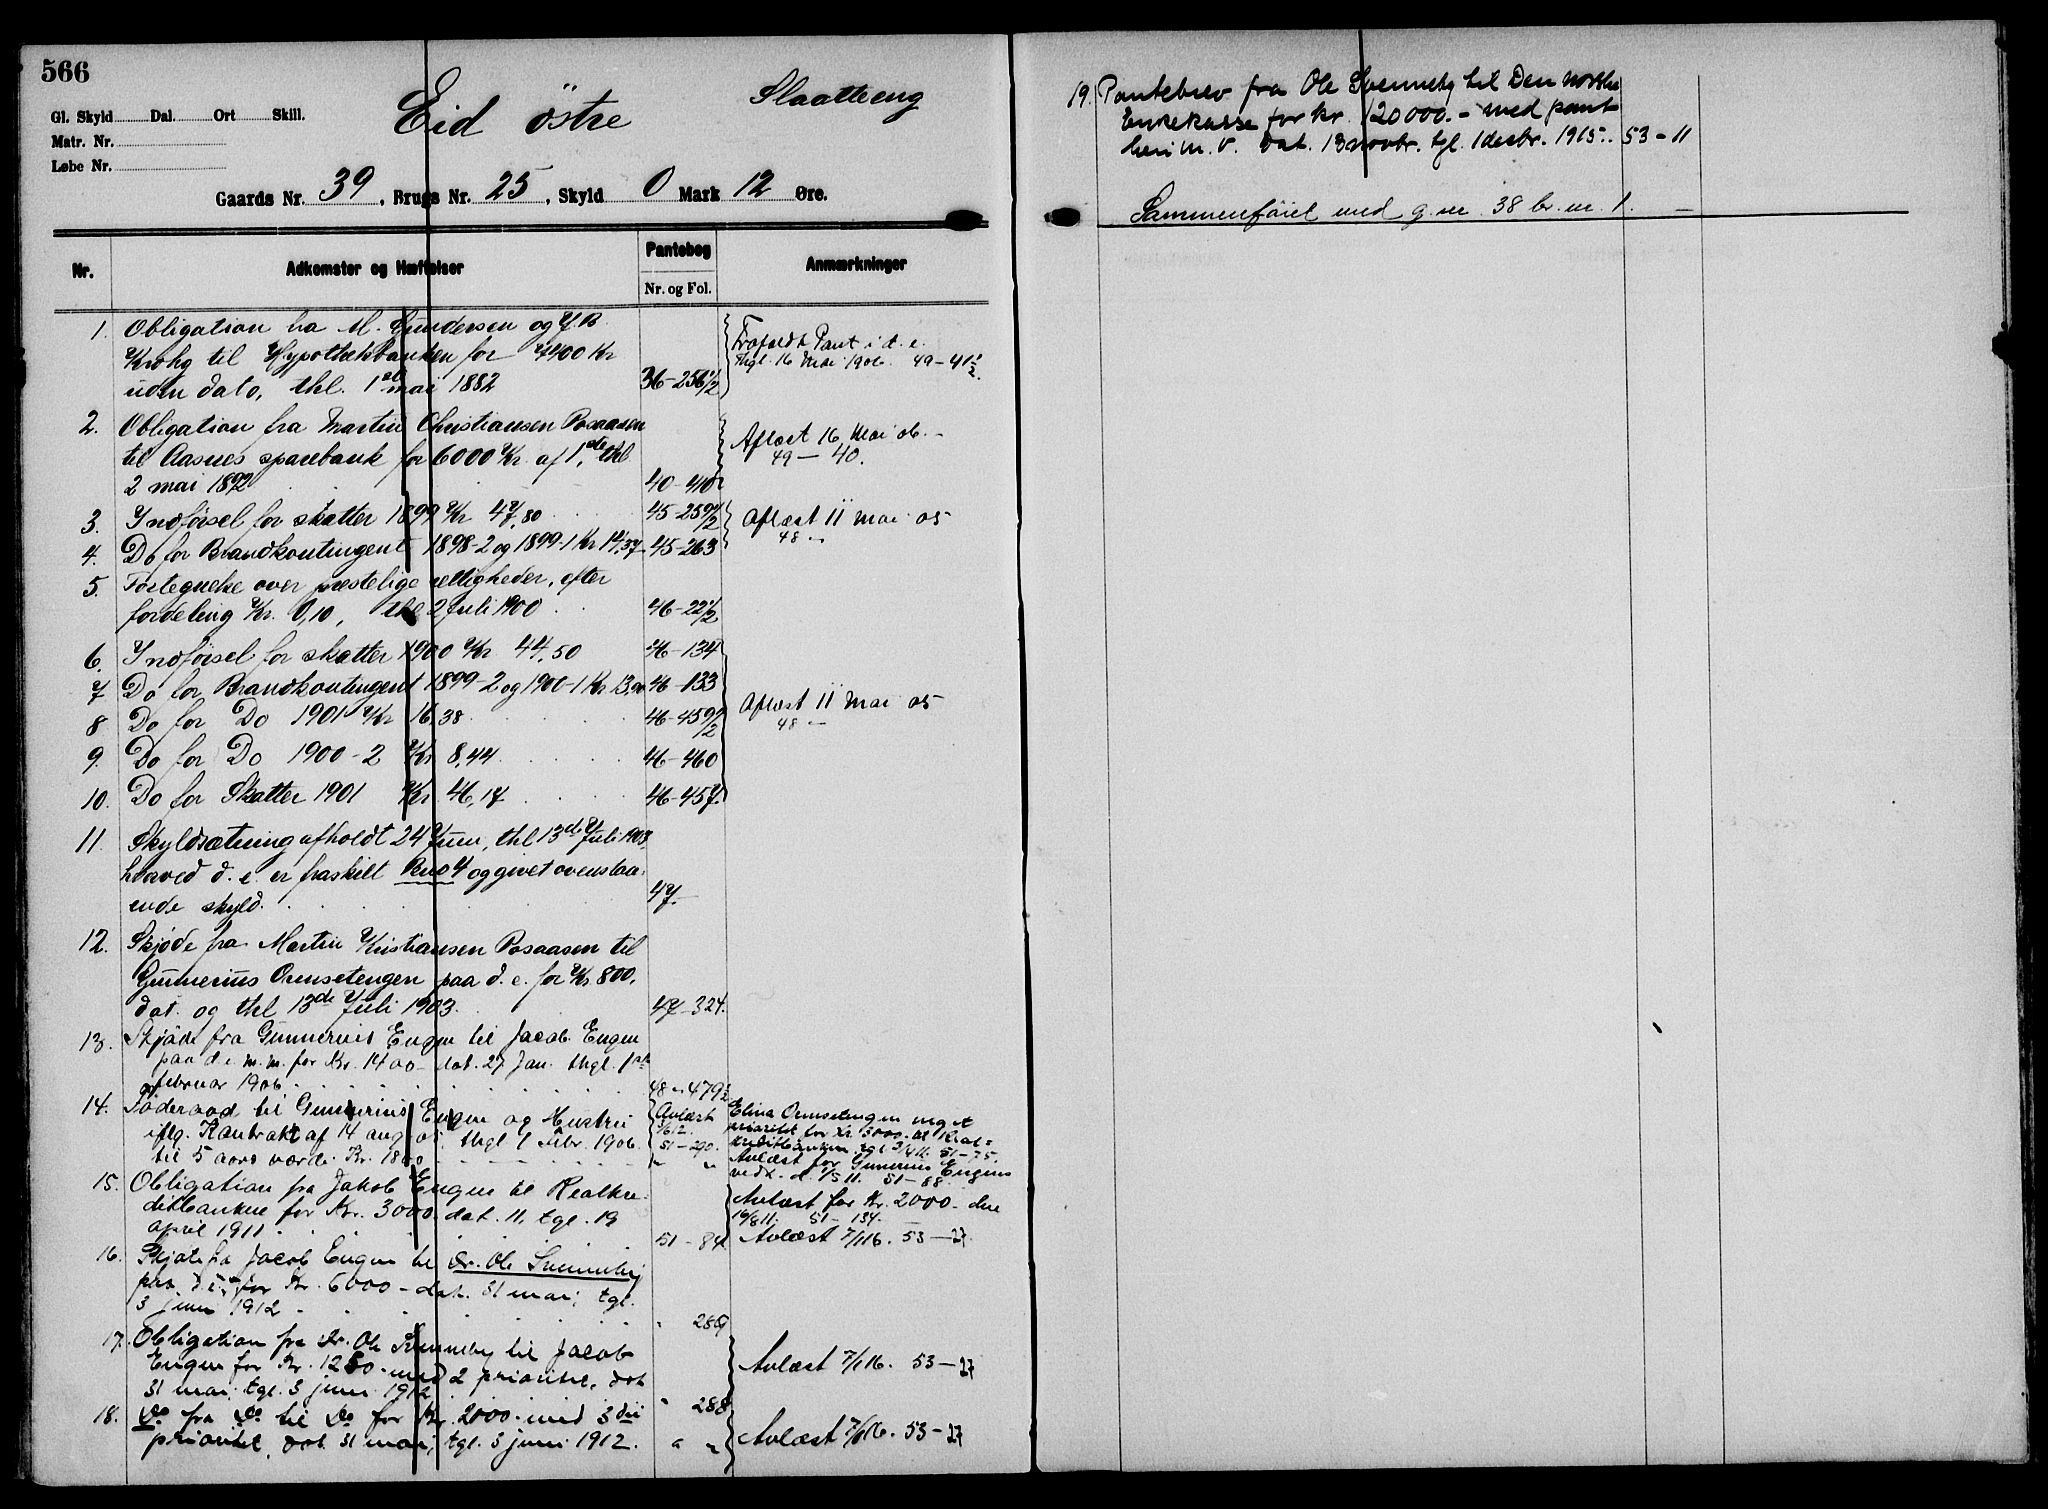 566
Gl. Skyld Dal. Ort Skill.
Matr. Nr.
Løbe Nr.
Eid östre Slaatteeng
Gaards Nr. 39, Brugs Nr. 25, Skyld 0 Mark 12 Øre.
Nr. Adkomster og Hæftelser Pantebog Anmærkninger
Nr. og Fol.
1. Obligation fra M. Gundersen og
Krohg til Hypothekbanken for 4400 Kr
uden dato, thl. 1ste mai 1882 36-256 1/2
Frafaldt Pant i d. e.
Thgl. 16 Mai 1906. 49-41 1/2.
2. Obligation fra Martin Christiansen Posaasen
til Aasnes sparebank for 6000 Kr. af 1ste thl
2 mai 1892 40-40
Aflæst 16 Mai 06.-
49-40.
3. Indførsel for skatter 1899 Kr 47,80 45-259 1/2
4. Do for Brandkontingent 1898-2 og 1899-1 Kr 14,37 45-263
Aflæst 11 Mai 05
48 -
5. Fortegnelse over præstelige rettigheder, efter
fordeling Kr. 0,10, thl 2 Juli 1900 46-22 1/2
6. Indførsel for skatter 1900 Kr 44,50 46-134
7 Do for Brandkontingent 1899-2 og 1900-1 Kr 13,90 46-133
8 Do for Do 1901 Kr 16,38 46-459 1/2
Aflæst 11 Mai 05
48 -
9. Do for Do 1900-2 Kr 8,44 46-460
10. Do for Skatter 1901 Kr 46,17 46-457.
11. Skyldsætning afholdt 24 Juni, thl 13de Juli 1903,
hvorved d. e. er fraskilt Bno 4 og givet ovenstaa-
ende skyld. 47.
12. Skjøde fra Martin Kristiansen Posaasen til
Gunnerius Ormsetengen paa d. e. for Kr 800,
dat. og thl 13de Juli 1903. 47-324.
13. Skjöde fra Gunnerius Engen til Jacob Engen
paa d. e. m. m. for Kr. 1400 - dat. 27 Jan. thgl. 1ste
februar 1906. 48-479 1/2
14. Föderaad til Gunnerius Engen og Hustru
iflg. Kontrakt af 14 aug 05. thgl 1 Febr. 1906.
til 5 aars værdi Kr.
Avlæst
51-290.
Elina Ormsetengen meget
prioritet for Kr. 3000.- til Real-
kreditbanken tgl 51-75.
Avlæst for Gunerius Engens
vedk. d. 51-88.
15. Obligation fra Jakob Engen til Realkre-
ditbanken for Kr. 3000. dat. 11, tgl. 19
april 1911. 51-84
Avlæst for Kr. 2000.- den
16/8 11. 51-134.
Avlæst 7/1 16. 53-27.
16. Skjöte fra Jacob Engen til dr. Ole Svenneby
paa d. e. for Kr. 6000 - dat. 31 mai; tgl.
3 juni 1912 " 289
17. Obligation fra dr. Ole Svenneby til Jacob
Engen for Kr. 1250.- med 2 prioritet, dat
31 mai; tgl. 3 juni 1912 " 288
Avlæst 7/1 16. 53-27
18. Do fra Do til Do for Kr. 2000.- med 3die
prioritet, dat 31 mai; tgl. 3 juni 1912. " "
Avlæst 7/1 16. 53-27
19. Pantebrev fra Ole Svenneby til Den norske
Enkekasse for kr. 120000.- med pant
heri m. v. Dat. 13 novbr. tgl. 1 desbr. 1915. 53-11
Sammenföiet med g. nr. 38 br. nr. 1. -